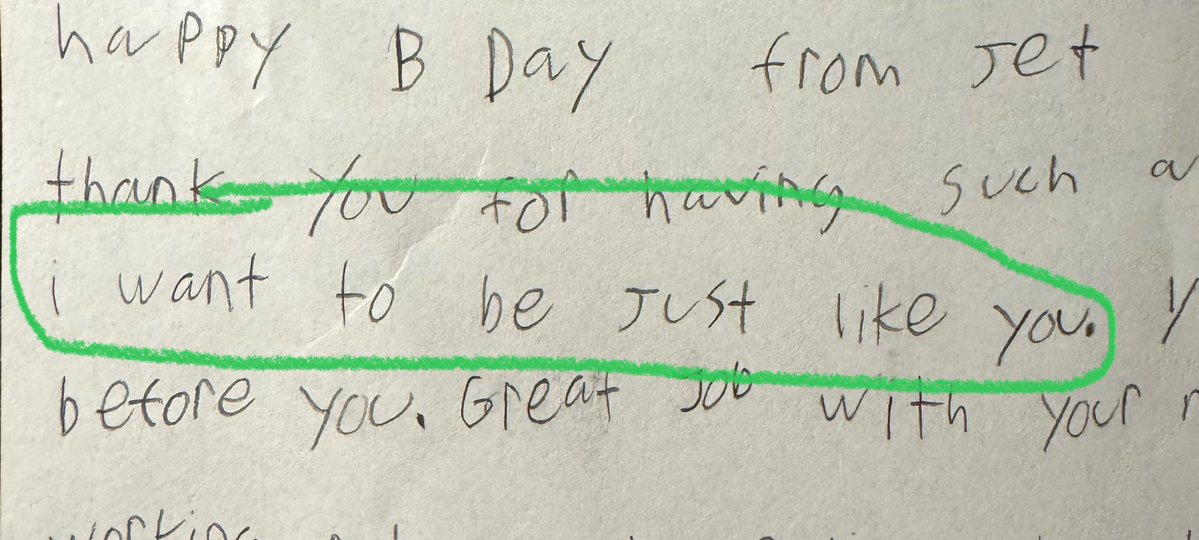 happy B Day from Jet
thank you for having such a
i want to be Just like you. y
before you. Great Job with your r
working